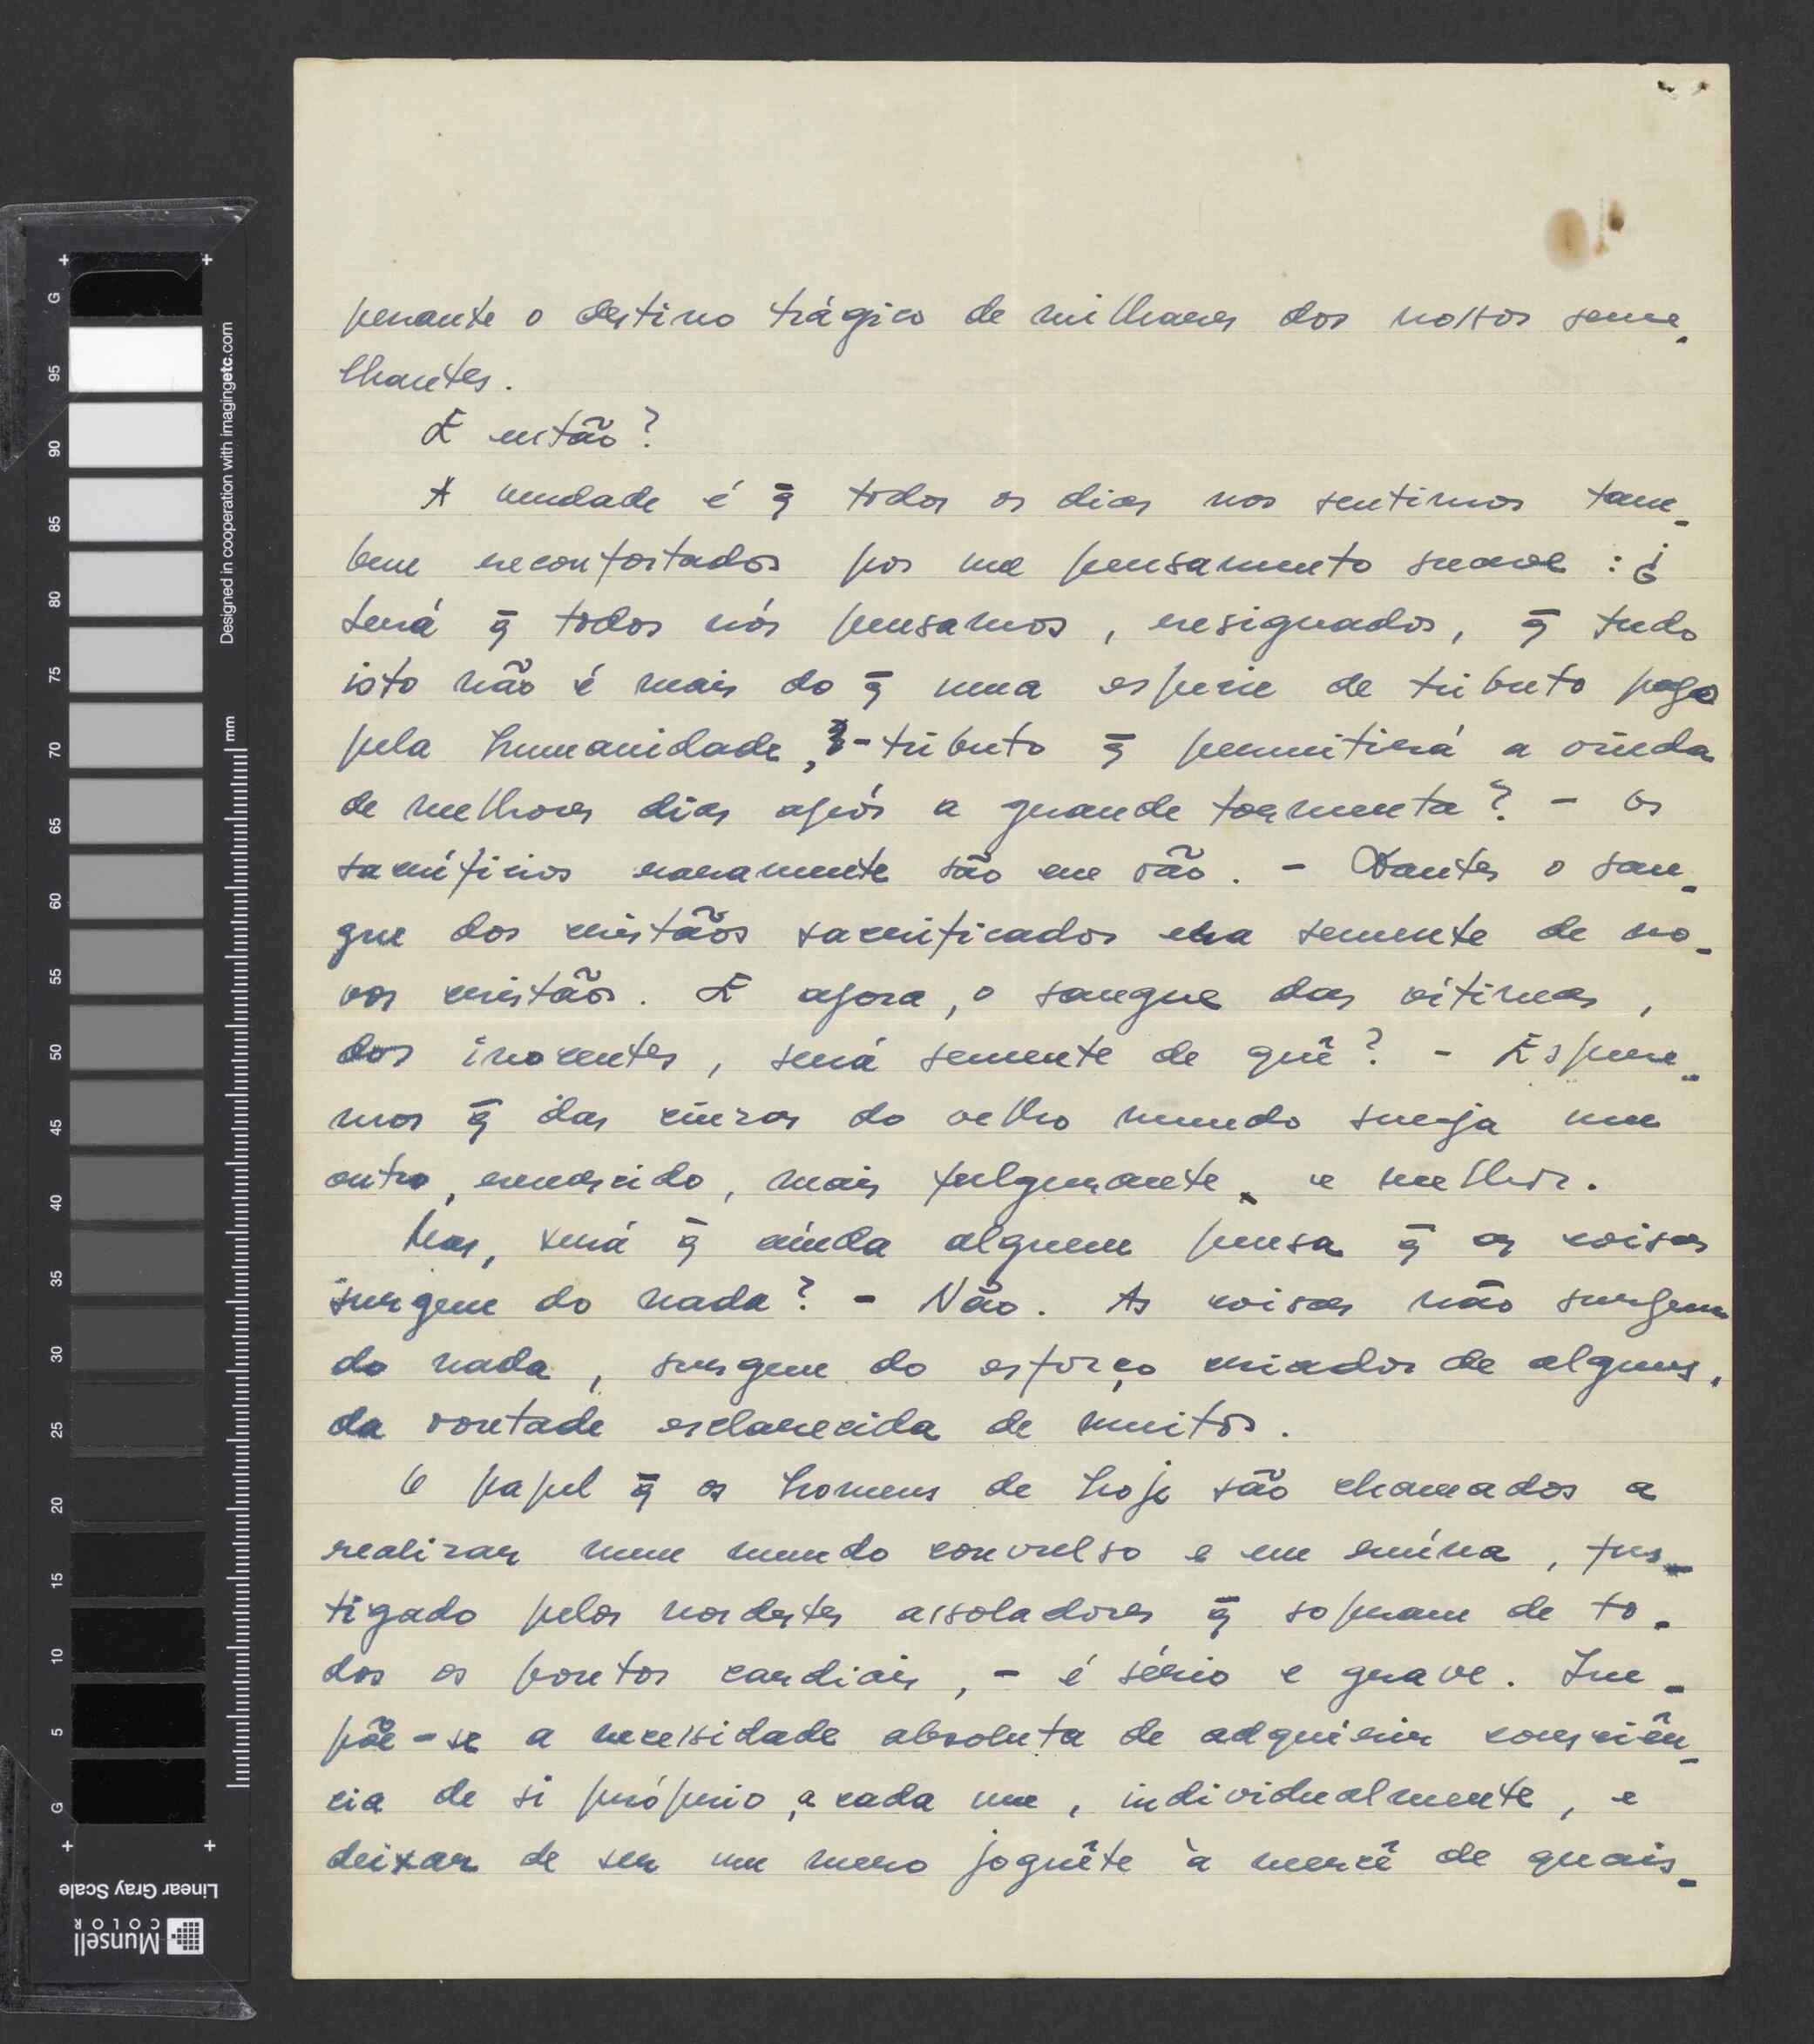 perante o destino trágico de milhares dos nossos seme-
lhantes.
E então?
A verdade é q̄ todos os dias nos sentimos tam-
bem reconfortados por um pensamento suave : ¿
Será q̄ todos nós pensamos, resignados, q̄ tudo
isto não é mais do q̄ uma especie de tributo pago
pela humanidade, - tributo q̄ permitirá a vinda
de melhores dias após a grande tormenta? - Os
sacrificios raramente são em vão. - Dantes o san-
gue dos cristãos sacrificados era semente de no-
vos cristãos. E agora, o sangue das vitimas,
dos inocentes, será semente de quê? - Espere-
mos q̄ das cinzas do velho mundo surja um
outro, renascido, mais fulgurante, e melhor.
Mas, será q̄ ainda alguem pensa q̄ as coisas
surgem do nada? - Não. As coisas não surgem
do nada, surgem do esforço criador de alguns,
da vontade esclarecida de muitos.
O papel q̄ os homens de hoje são chamados a
realizar num mundo convulso e em ruína, fus-
tigado pelos nordestes assoladores q̄ sopram de to-
dos os pontos cardiais, - é sério e grave. Im-
põe-se a necessidade absoluta de adquirir consciên-
cia de si próprio, a cada um, individualmente, e
deixar de ser um mero joguête à mercê de quais-
Designed in cooperation with imagingetc.com
mm
G 95 90 85 80 75 70 65 60 55 50 45 40 35 30 25 20 15 10 5 G
Linear Gray Scale
Munsell
COLOR